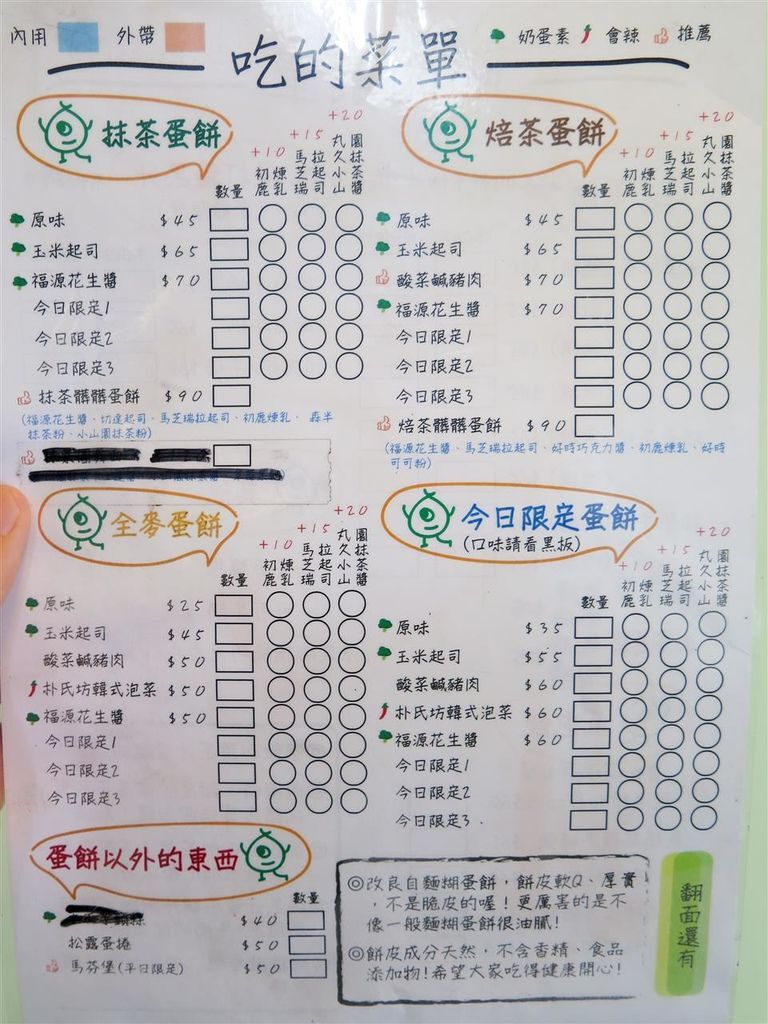 內用 外帶 吃的菜單 奶蛋素 會辣 推薦
抹茶蛋餅
數量
+10 初鹿煉乳
+15 馬芝瑞拉起司
+20 丸久小山園抹茶醬
原味 $45
玉米起司 $65
福源花生醬 $70
今日限定1
今日限定2
今日限定3
抹茶髒髒蛋餅 $90
(福源花生醬、切達起司、馬芝瑞拉起司、初鹿煉乳、森半
抹茶粉、小山園抹茶粉)
焙茶蛋餅
數量
+10 初鹿煉乳
+15 馬芝瑞拉起司
+20 丸久小山園抹茶醬
原味 $45
玉米起司 $65
酸菜鹹豬肉 $70
福源花生醬 $70
今日限定1
今日限定2
今日限定3
焙茶髒髒蛋餅 $90
(福源花生醬、馬芝瑞拉起司、好時巧克力醬、初鹿煉乳、好時
可可粉)
全麥蛋餅
數量
+10 初鹿煉乳
+15 馬芝瑞拉起司
+20 丸久小山園抹茶醬
原味 $25
玉米起司 $45
酸菜鹹豬肉 $50
朴氏坊韓式泡菜 $50
福源花生醬 $50
今日限定1
今日限定2
今日限定3
今日限定蛋餅
(口味請看黑板)
數量
+10 初鹿煉乳
+15 馬芝瑞拉起司
+20 丸久小山園抹茶醬
原味 $35
玉米起司 $55
酸菜鹹豬肉 $60
朴氏坊韓式泡菜 $60
福源花生醬 $60
今日限定1
今日限定2
今日限定3
蛋餅以外的東西
數量
$40
松露蛋捲 $50
馬芬堡(平日限定) $50
◎改良自麵糊蛋餅，餅皮軟Q、厚實
，不是脆皮的喔！更厲害的是不
像一般麵糊蛋餅很油膩！
◎餅皮成分天然，不含香精、食品
添加物！希望大家吃得健康開心！
翻面還有